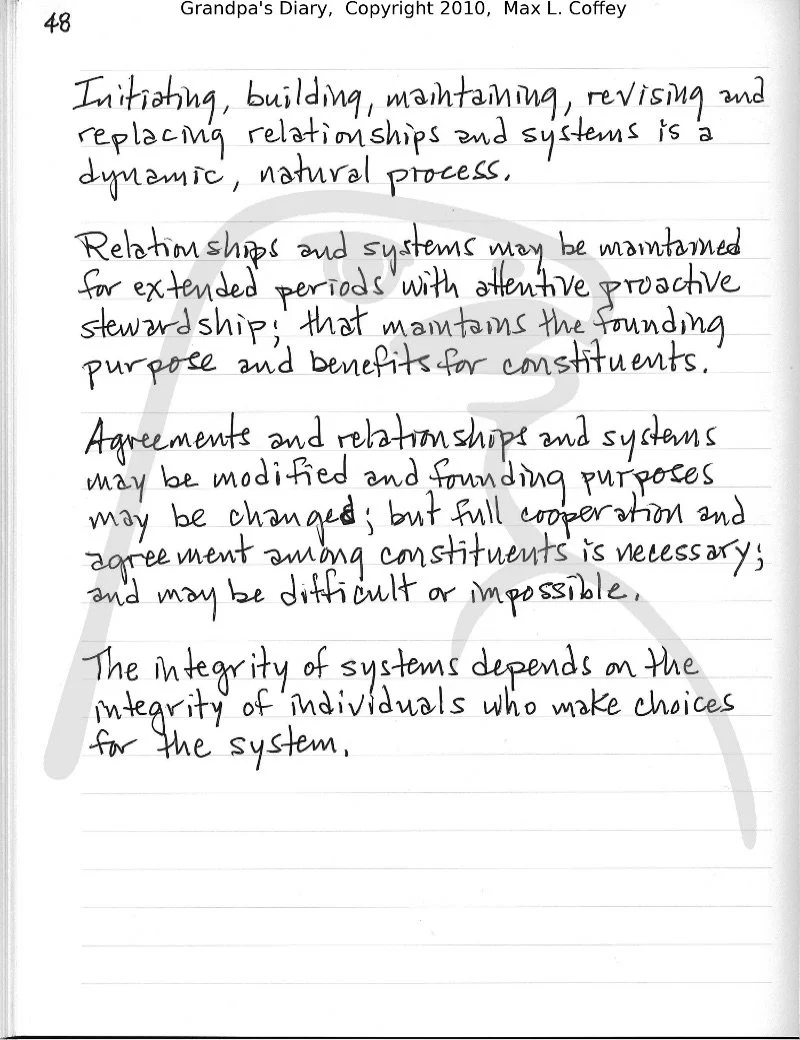 Grandpa's Diary, Copyright 2010, Max L. Coffey
48
Initiating, building, maintaining, revising and
replacing relationships and systems is a
dynamic, natural process.
Relationships and systems may be maintained
for extended periods with attentive proactive
stewardship; that maintains the founding
purpose and benefits for constituents.
Agreements and relationships and systems
may be modified and founding purposes
may be changed; but full cooperation and
agreement among constituents is necessary;
and may be difficult or impossible.
The integrity of systems depends on the
integrity of individuals who make choices
for the system.